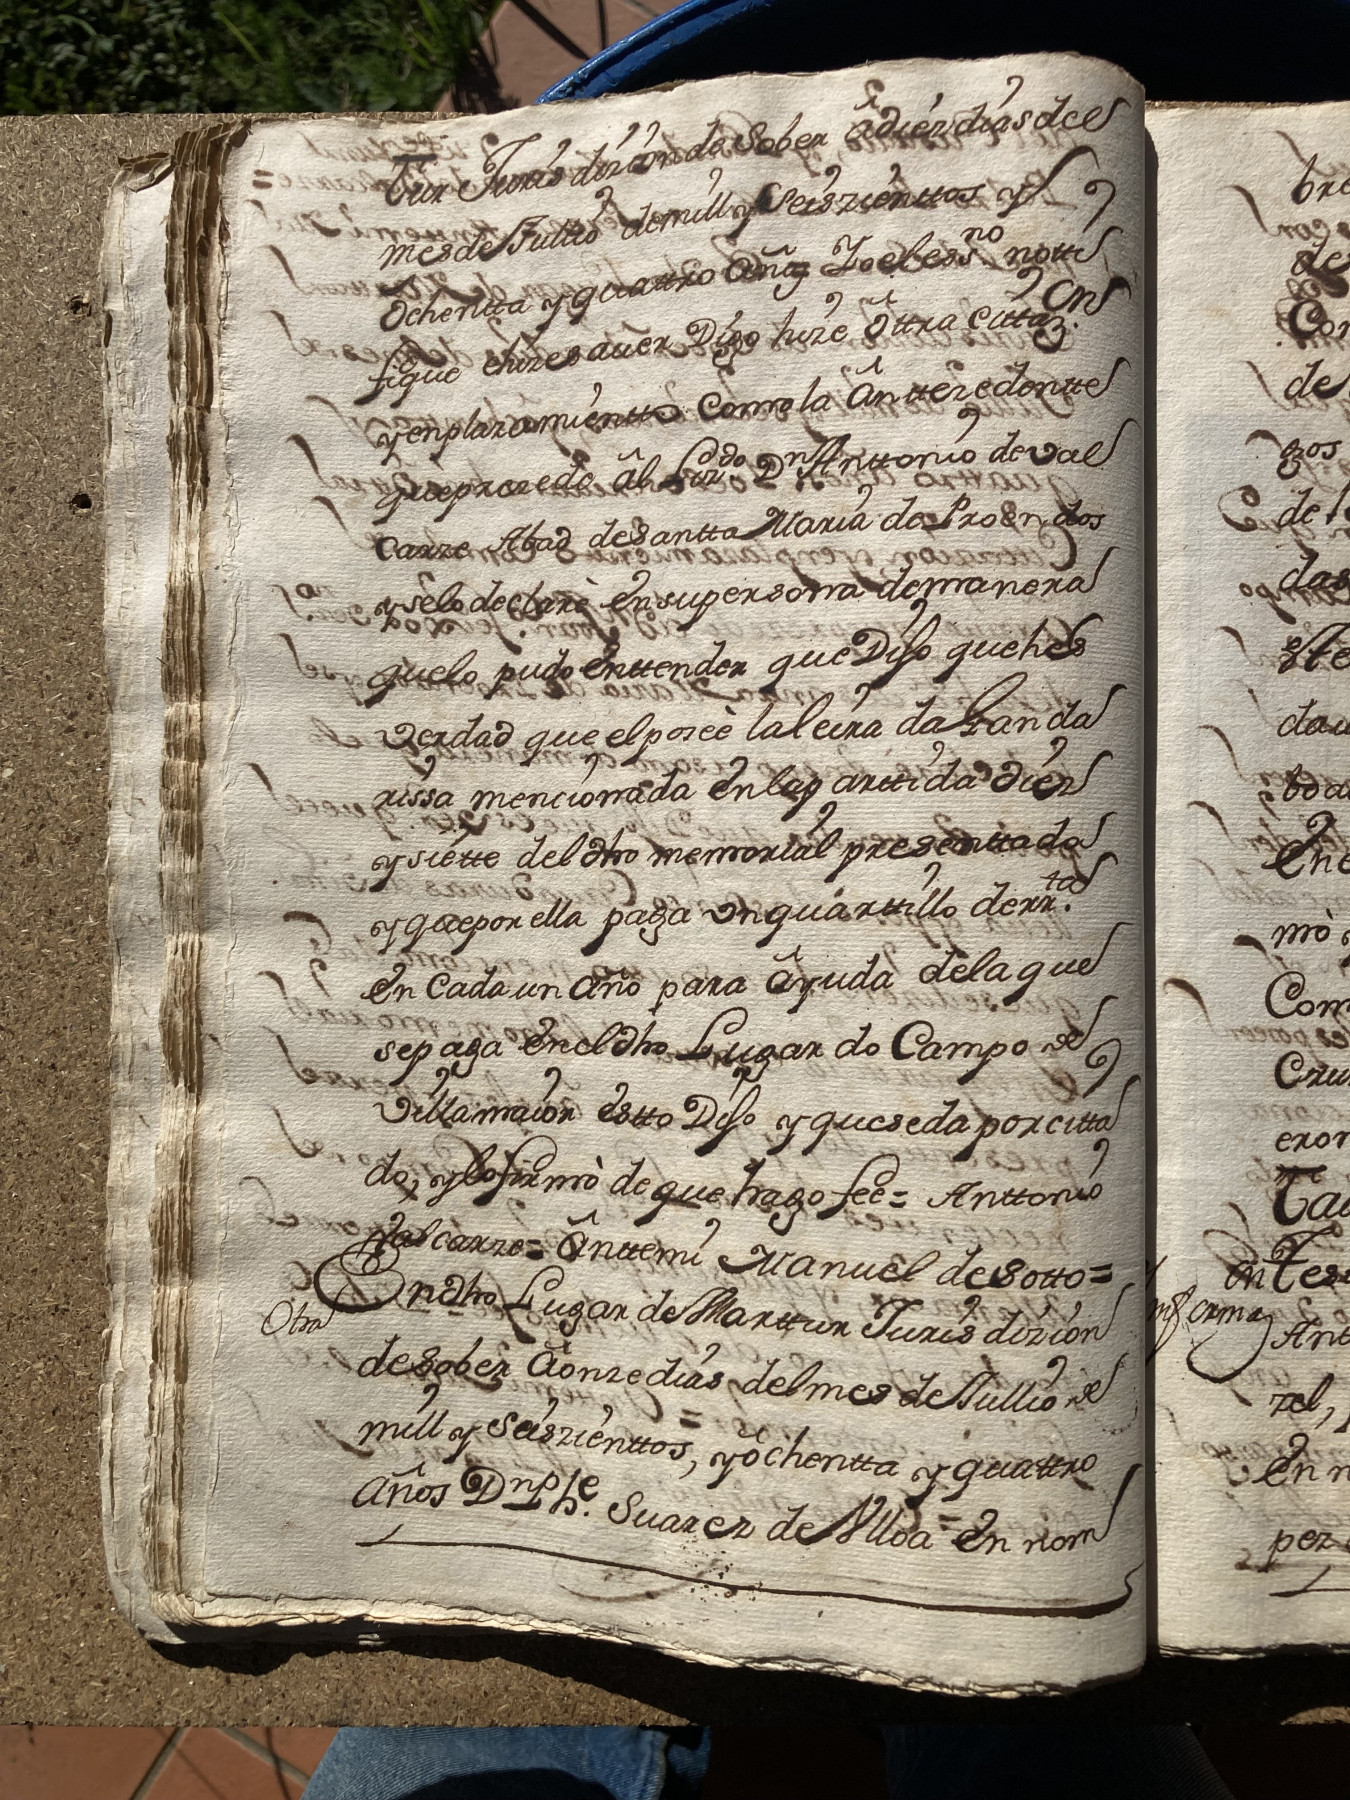 tur Jurisdizion de Sober â diez dias del
mes de Jullio de mill y Seiszienttos y
ochentta y quattro añs Yo el essno notti
fique e hize saver Digo hize ôttra citaz.on
y enplazamientto como la ântezedentte
que prezede âl Lizdo Dn Anttonio de val
carze Abad de Santta Maria de Proendos
y se lo declarè en supersona de manera
que lo pudo enttender que Diso que hes
verdad que el poseè la leira da Landa
rissa mencionada en la parttida dien
y siette del dho memorial presenttado
y que por ella paga un quarttillo de rr.ta
en Cada un año para âyuda de la que
se paga en el dho Lugar do Campo de
Villamaior estto Diso y que se da por citta
do, y lo firmò de que hago feè = Anttonio
Valcarze = ânttemi Manuel de Sotto =
Otra
En dho Lugar de Marttur Jurisdizion
de Sober â onze dias del mes de Jullio de
mill y Seiszienttos, y ôchentta y quattro
años Dn phe. Suarez de Ulloa = en nom
bre
de
Con
de
gos
de
das
dau
mò
Com
Cru
eron
Ant
zel,
en n
pez